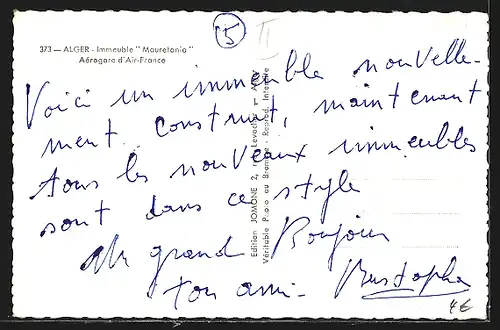 5 II
373 — ALGER - Immeuble " Mauretania "
Aérogare d'Air-France
Voici un immeuble nouvelle-
ment construit, maintenant
tous les nouveaux immeubles
sont dans ce style
Un grand Bonjour
ton ami - Mustapha
4€
Edition JOMONE 2, Levacher - ALGER
Véritable Photo au Bromure - Reprod. Interdite